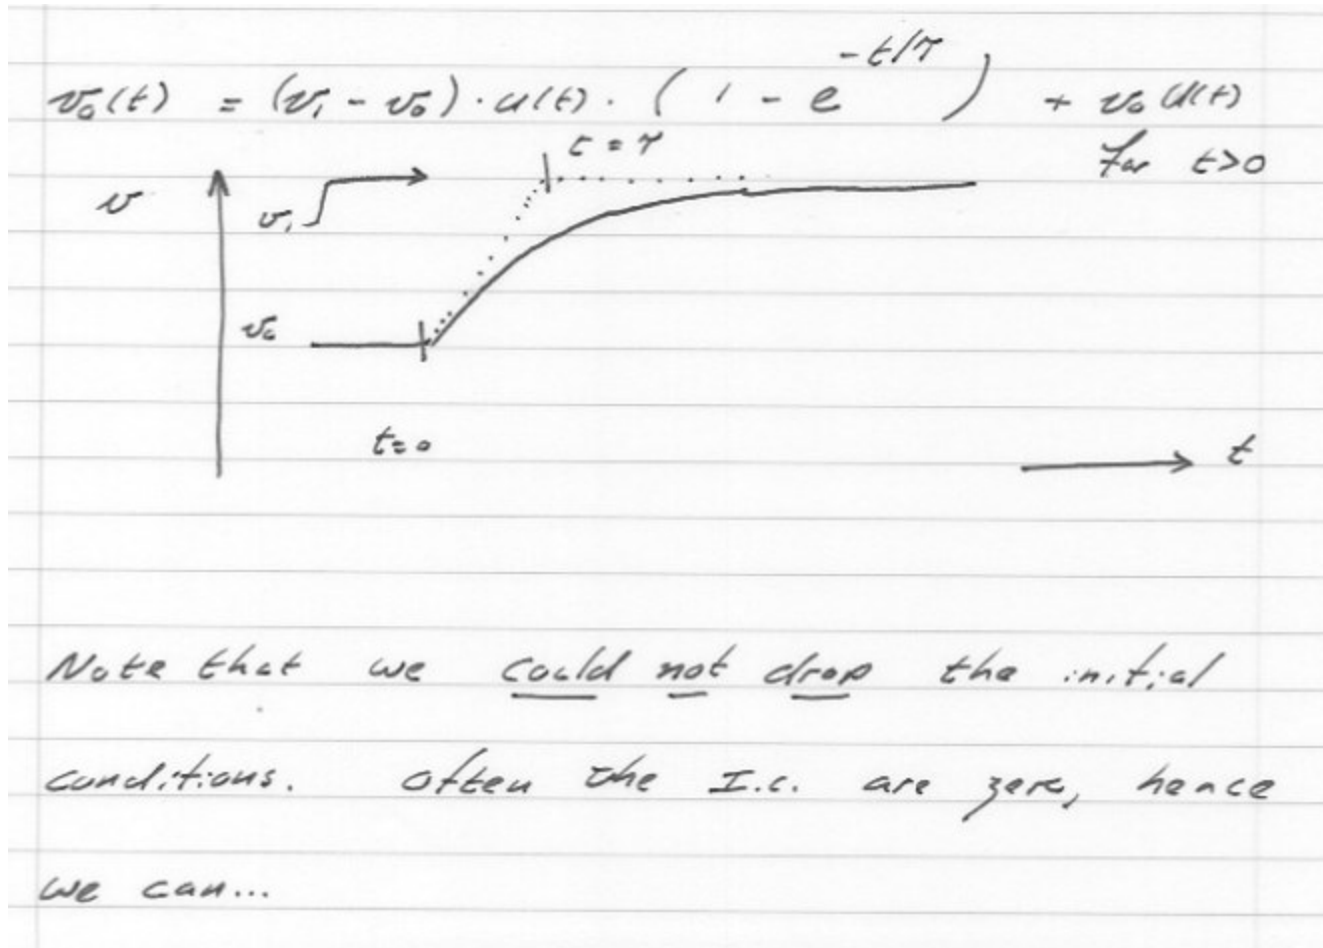 v₀(t) = (v₁ - v₀) · u(t) · ( 1 - e^(-t/τ) ) + v₀ u(t)
for t>0
t = τ
v
v₁
v₀
t=0
t
Note that we could not drop the initial
conditions. Often the I.C. are zero, hence
we can...